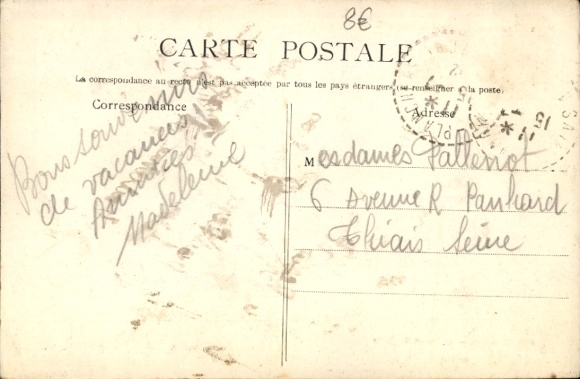 8€
CARTE POSTALE
La correspondance au recto n'est pas acceptée par tous les pays étrangers (se renseigner à la poste)
Correspondance
Adresse
Bons souvenirs
de vacances
Amitiés
Madeleine
Mesdames
6 Avenue R Panhard
Thiais Seine